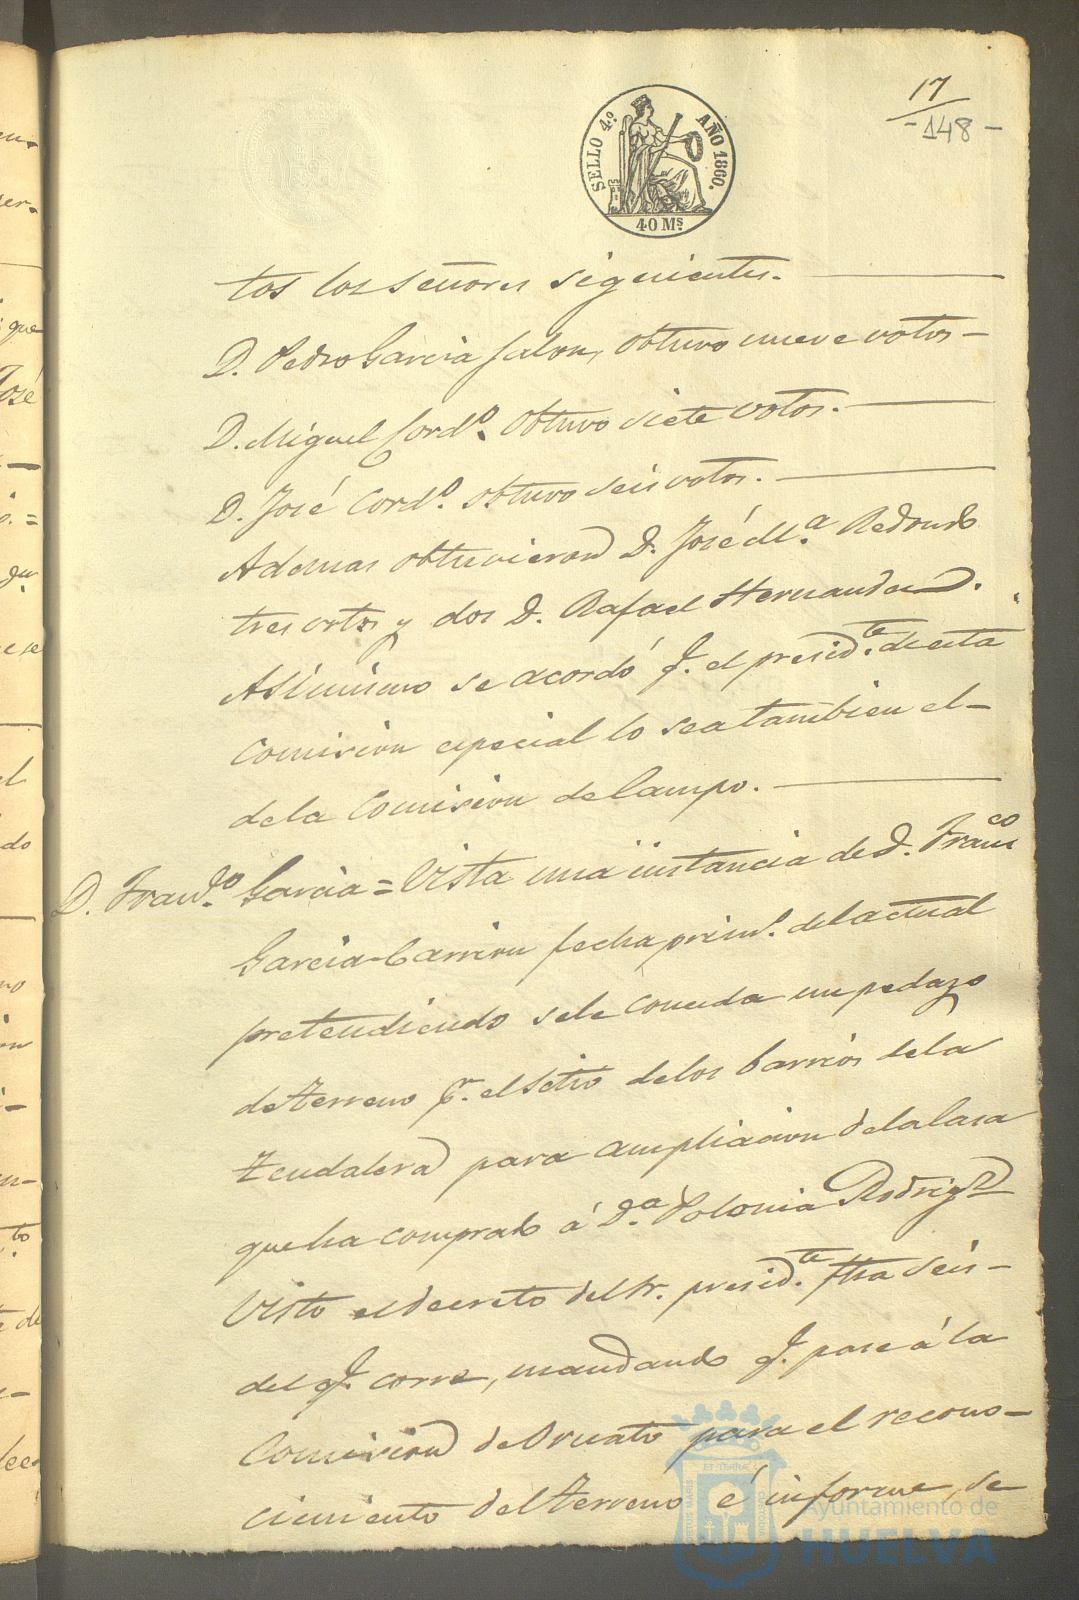 17
-148-
SELLO 4.º AÑO 1860.
40 Ms.
tos los señores siguientes.
D. Pedro Garcia Jalon, obtuvo nueve votos-
D. Miguel Cord.º obtuvo siete votos.
D. José Cord.º obtuvo seis votos.
Ademas obtuvieron D. José M.ª Redondo
tres votos y dos D. Rafael Hernandez.
Asimismo se acordó q. el presid.te de esta
comision especial lo sea tambien el-
de la Comision de Campo.
D. Fran.co Garcia = Vista una instancia de D. Franco
Garcia Carrion fecha prim.º del actual
pretendiendo se le conceda un pedazo
de terreno p.r el sitio de los barrios de la
Zendalera para ampliacion de la Casa
que ha comprado á D.ª Polonia Rodrigz
Visto el decreto del Sr. presid.te fha seis-
del q. corre, mandando q. pase á la
Comision de Ornato para el recono-
cimiento del terreno é informe, de
Ayuntamiento de
HUELVA